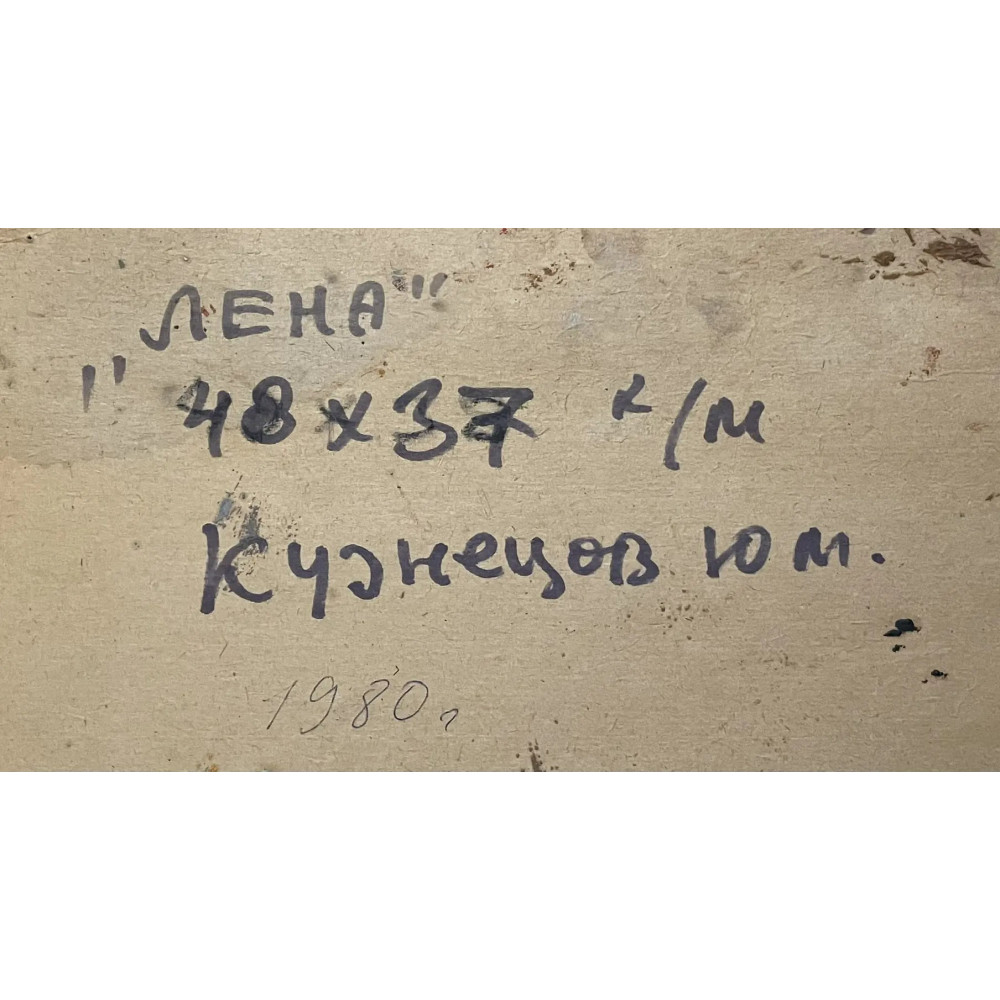 "ЛЕНА"
48х37 к/м
Кузнецов Ю м.
1980г